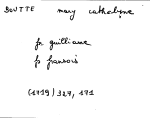 BOUTTE mary catholyne
fs guilliame
fs fransois
(1719) 327, 171